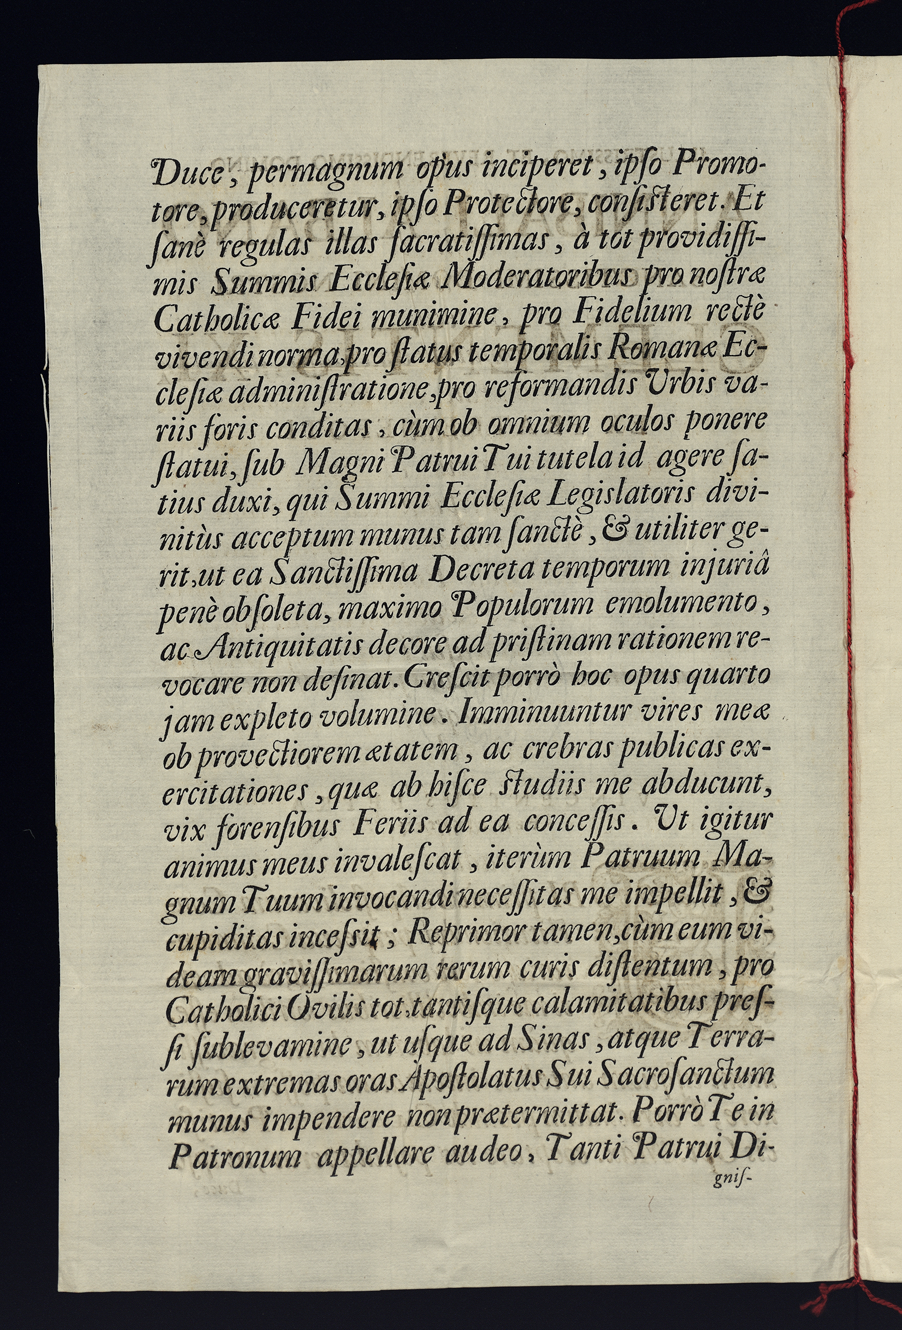 Duce, permagnum opus inciperet, ipſo Promo-
tore, produceretur, ipſo Protectore, conſiſteret. Et
ſanè regulas illas ſacratiſſimas, à tot providiſſi-
mis Summis Eccleſiæ Moderatoribus pro noſtræ
Catholicæ Fidei munimine, pro Fidelium rectè
vivendi norma, pro ſtatus temporalis Romanæ Ec-
cleſiæ adminiſtratione, pro reformandis Urbis va-
riis foris conditas, cùm ob omnium oculos ponere
ſtatui, ſub Magni Patrui Tui tutela id agere ſa-
tius duxi, qui Summi Eccleſiæ Legislatoris divi-
nitùs acceptum munus tam ſanctè, & utiliter ge-
rit, ut ea Sanctiſſima Decreta temporum injuriâ
penè obſoleta, maximo Populorum emolumento,
ac Antiquitatis decore ad priſtinam rationem re-
vocare non deſinat. Creſcit porrò hoc opus quarto
jam expleto volumine. Imminuuntur vires meæ
ob provectiorem ætatem, ac crebras publicas ex-
ercitationes, quæ ab hiſce ſtudiis me abducunt,
vix forenſibus Feriis ad ea conceſſis. Ut igitur
animus meus invaleſcat, iterùm Patruum Ma-
gnum Tuum invocandi neceſſitas me impellit, &
cupiditas inceſsit; Reprimor tamen, cùm eum vi-
deam graviſſimarum rerum curis diſtentum, pro
Catholici Ovilis tot, tantiſque calamitatibus preſ-
ſi ſublevamine, ut uſque ad Sinas, atque Terra-
rum extremas oras Apoſtolatus Sui Sacroſanctum
munus impendere non prætermittat. Porrò Te in
Patronum appellare audeo, Tanti Patrui Di-
gniſ-